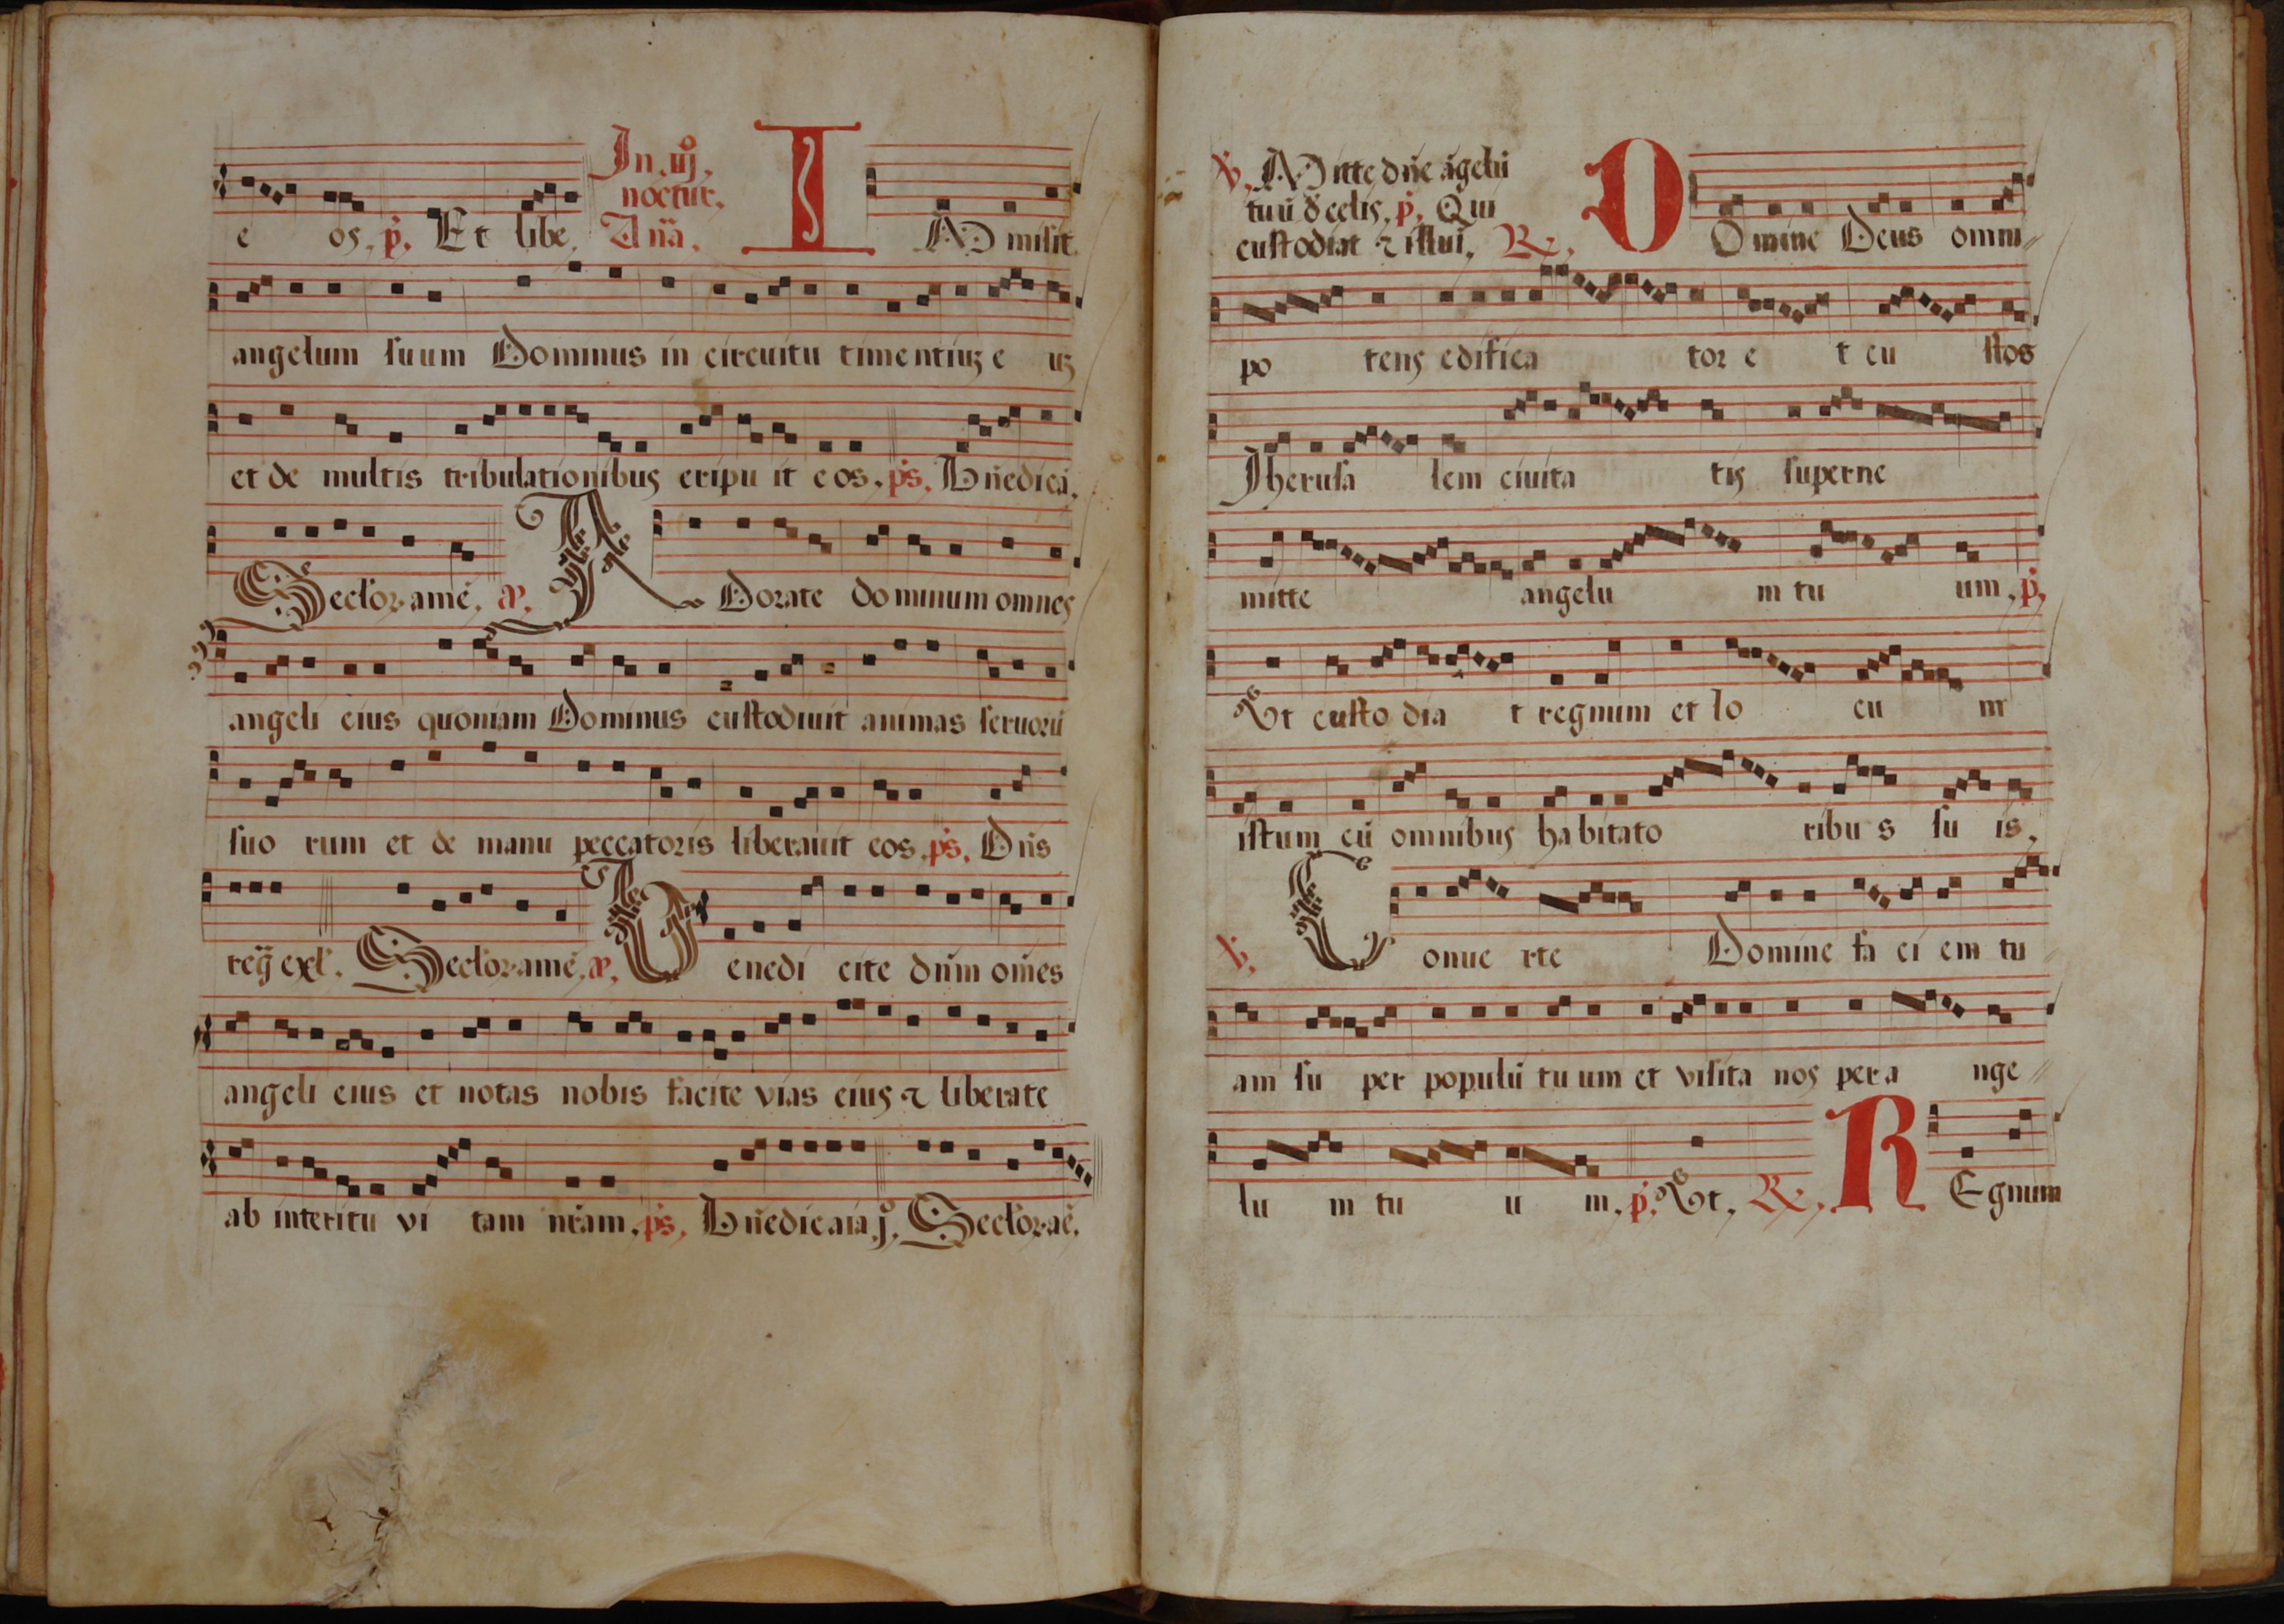 e os. p̄. Et libe. In .iij. noctur. Aña. IMmisit
angelum suum Dominus in circuitu timentiuz euz
et de multis tribulationibus eripuit eos. ps. Bñedicā.
Seculor.amē. añ. ADorate dominum omnes
angeli eius quoniam Dominus custodiuit animas seruorū
suorum et de manu peccatoris liberauit eos. ps. Dñs
reg̃ exl̃. Seculor.amē. añ. Benedicite dñm om̃es
angeli eius et notas nobis facite vias eius ⁊ liberate
ab interitu vitam nr̃am. ps. Bñedic aīa .j. Seculor.aē.
℣. Mitte dñe āgelū
tuū d̄ celis. p̄. Qui
custodiat ⁊ illui. ℟. DOmine Deus omni
potens edificator et custos
Jherusalem ciuitatis superne
mitte angelum tuum. p̄.
Vt custodiat regnum et locum
istum cū omnibus habitatoribus suis.
℣. Conuerte Domine faciem tu
am super populū tuum et visita nos per ange
lum tuum. p̄. Vt. ℟. REgnum